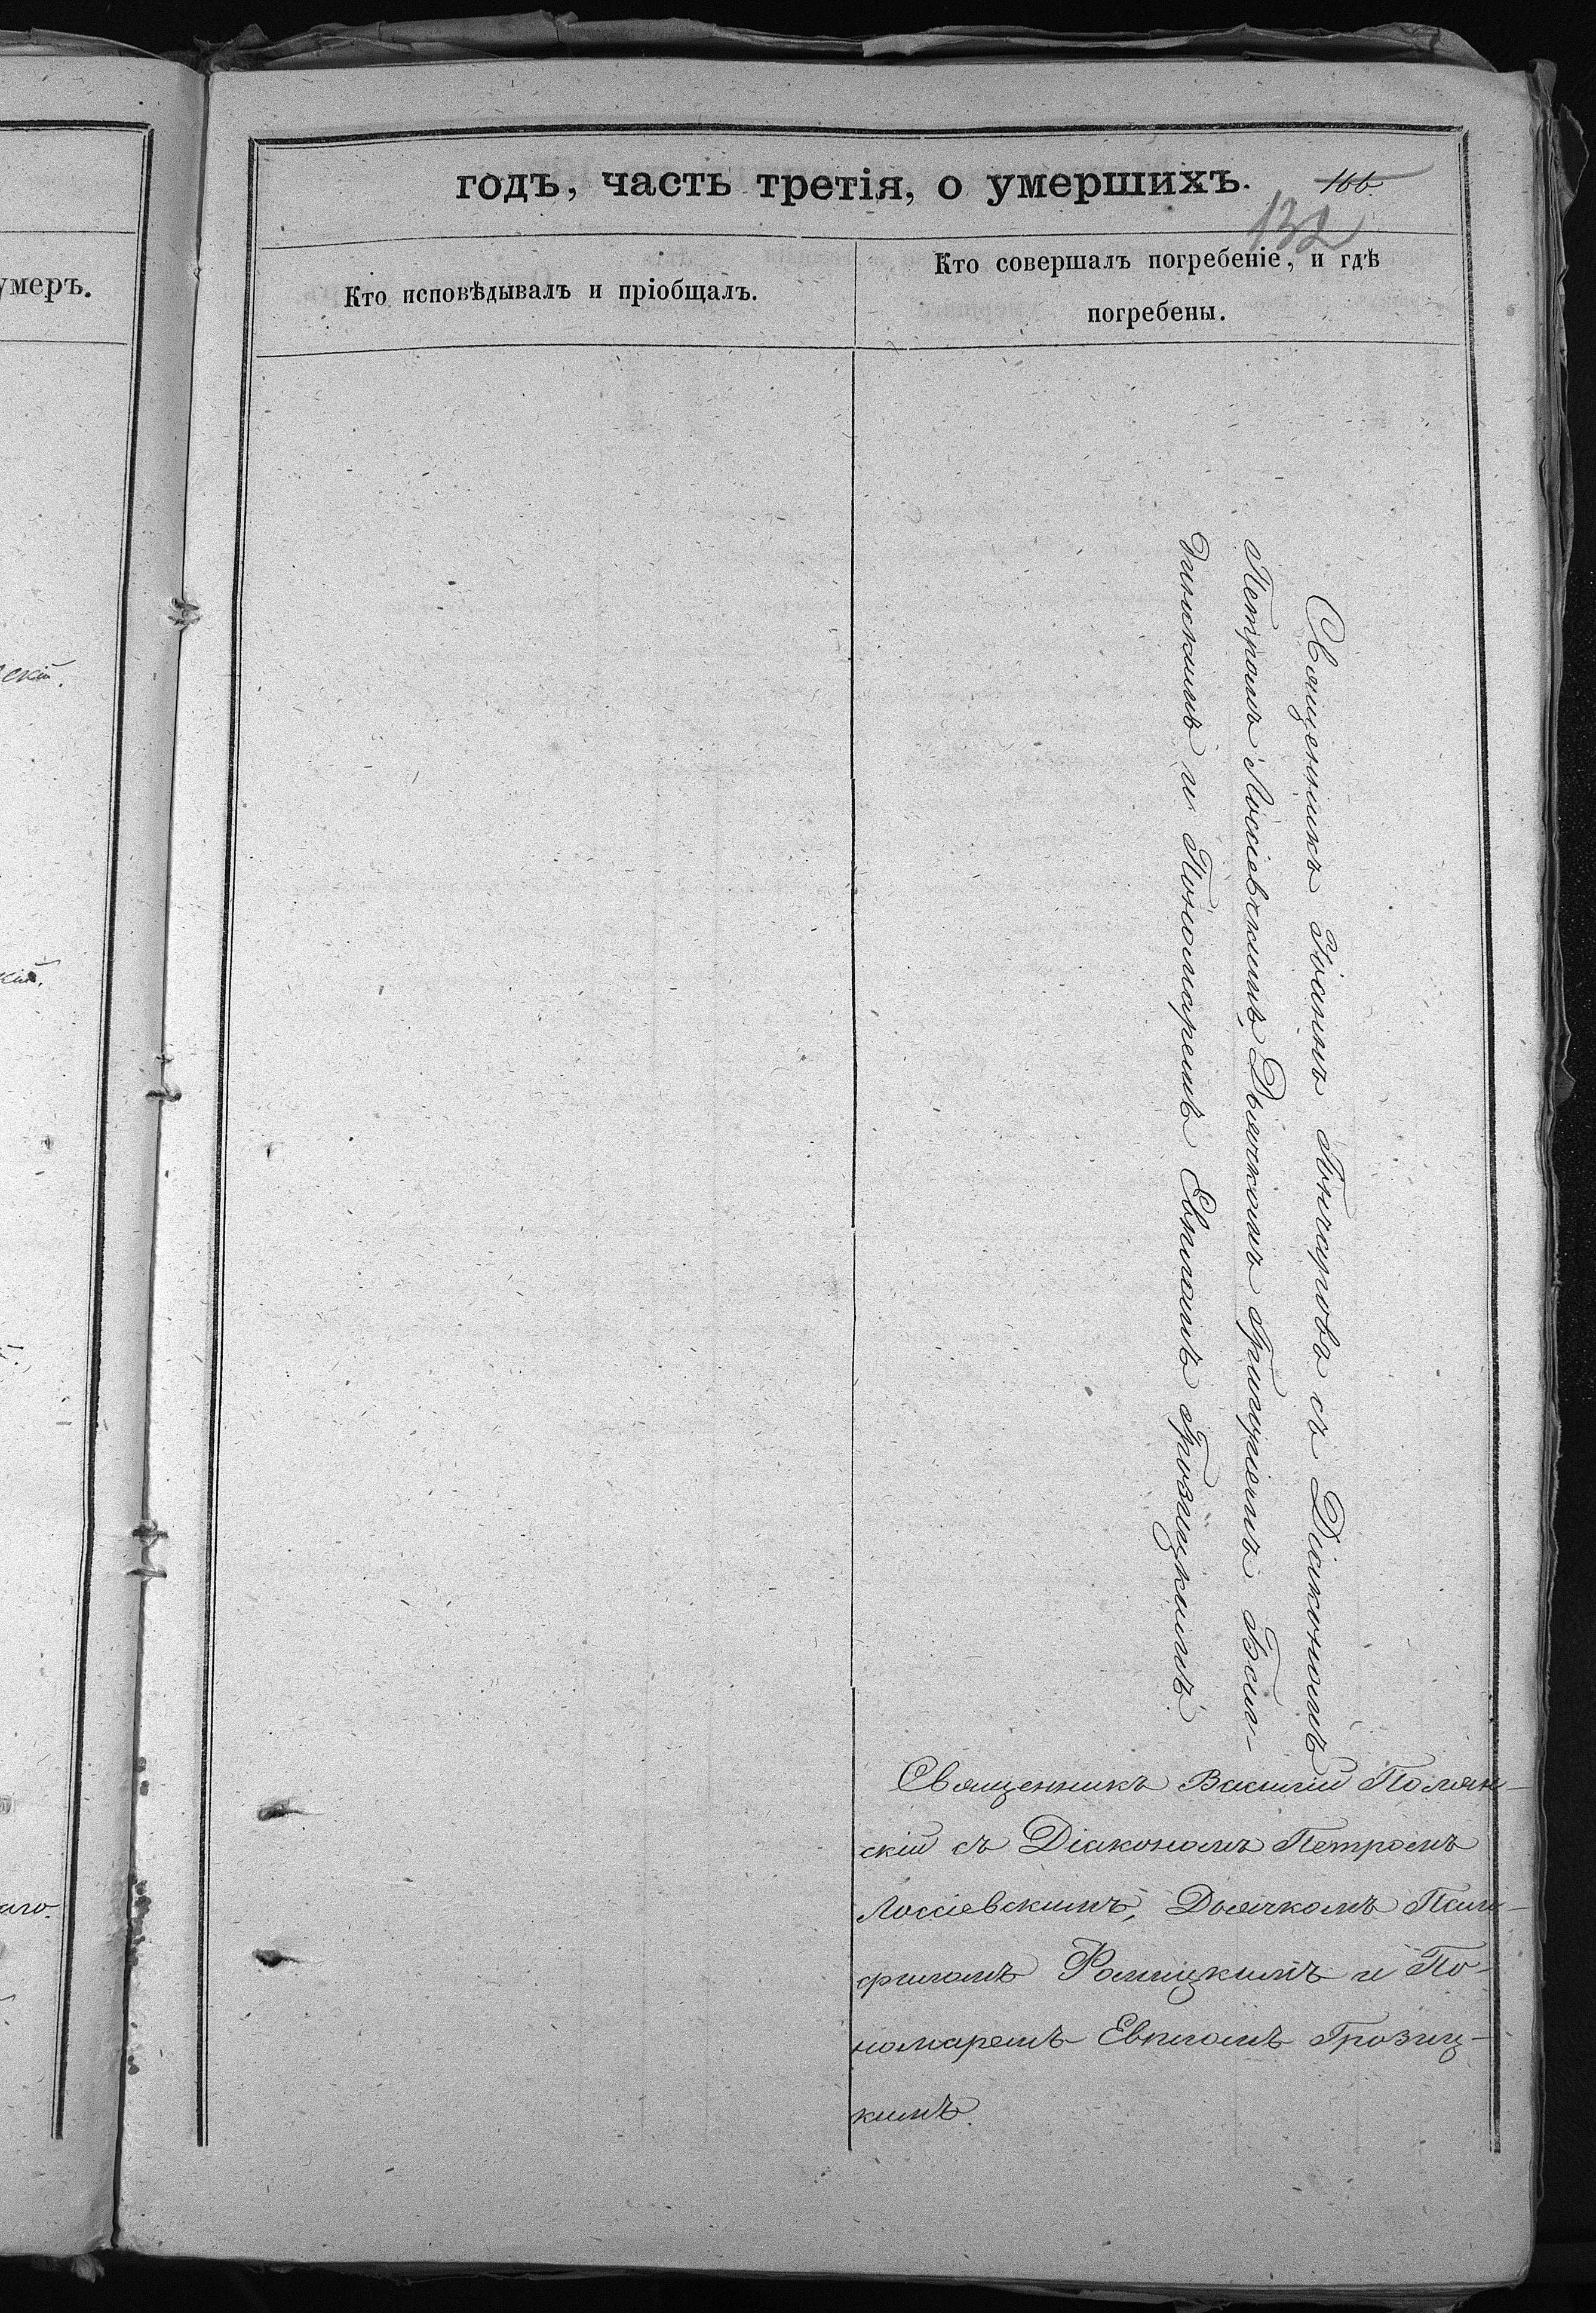 годъ, часть третія, о умершихъ.
166
132
умеръ.
Кто исповѣдывалъ и пріобщалъ.
Кто совершалъ погребеніе, и гдѣ
погребены.
скій.
кій.
аго.
Священникъ Іоаннъ с Діакономъ
Петромъ Лоссіевскимъ, Дьячкомъ Григоріемъ
и Пономаремъ Евпломъ Грозицкимъ.
Священникъ Василій Полян-
скій съ Діакономъ Петромъ
Лоссіевскимъ, Дьячкомъ Пам-
филомъ Ромицкимъ и По-
номаремъ Евпломъ Грозиц-
кимъ.